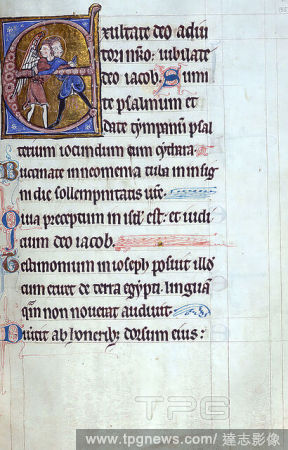 Exultate deo adiu
tori nr̄o: iubilate
deo iacob. Sumi
te psalmum et
date tympanū psal
terium iocundum cum cythara.
Bucinate in neomenia tuba in insig
ni die sollempnitatis vr̄e.
Quia preceptum in isrl̄ est: et iudi
cium deo iacob.
Testimonium in ioseph posuit illð
cum exiret de terra egypti: linguā
quā non nouerat audiuit.
Diuertit ab honeribꝫ dorsum eius:
TPG
www.tpgnews.com/ 達志影像